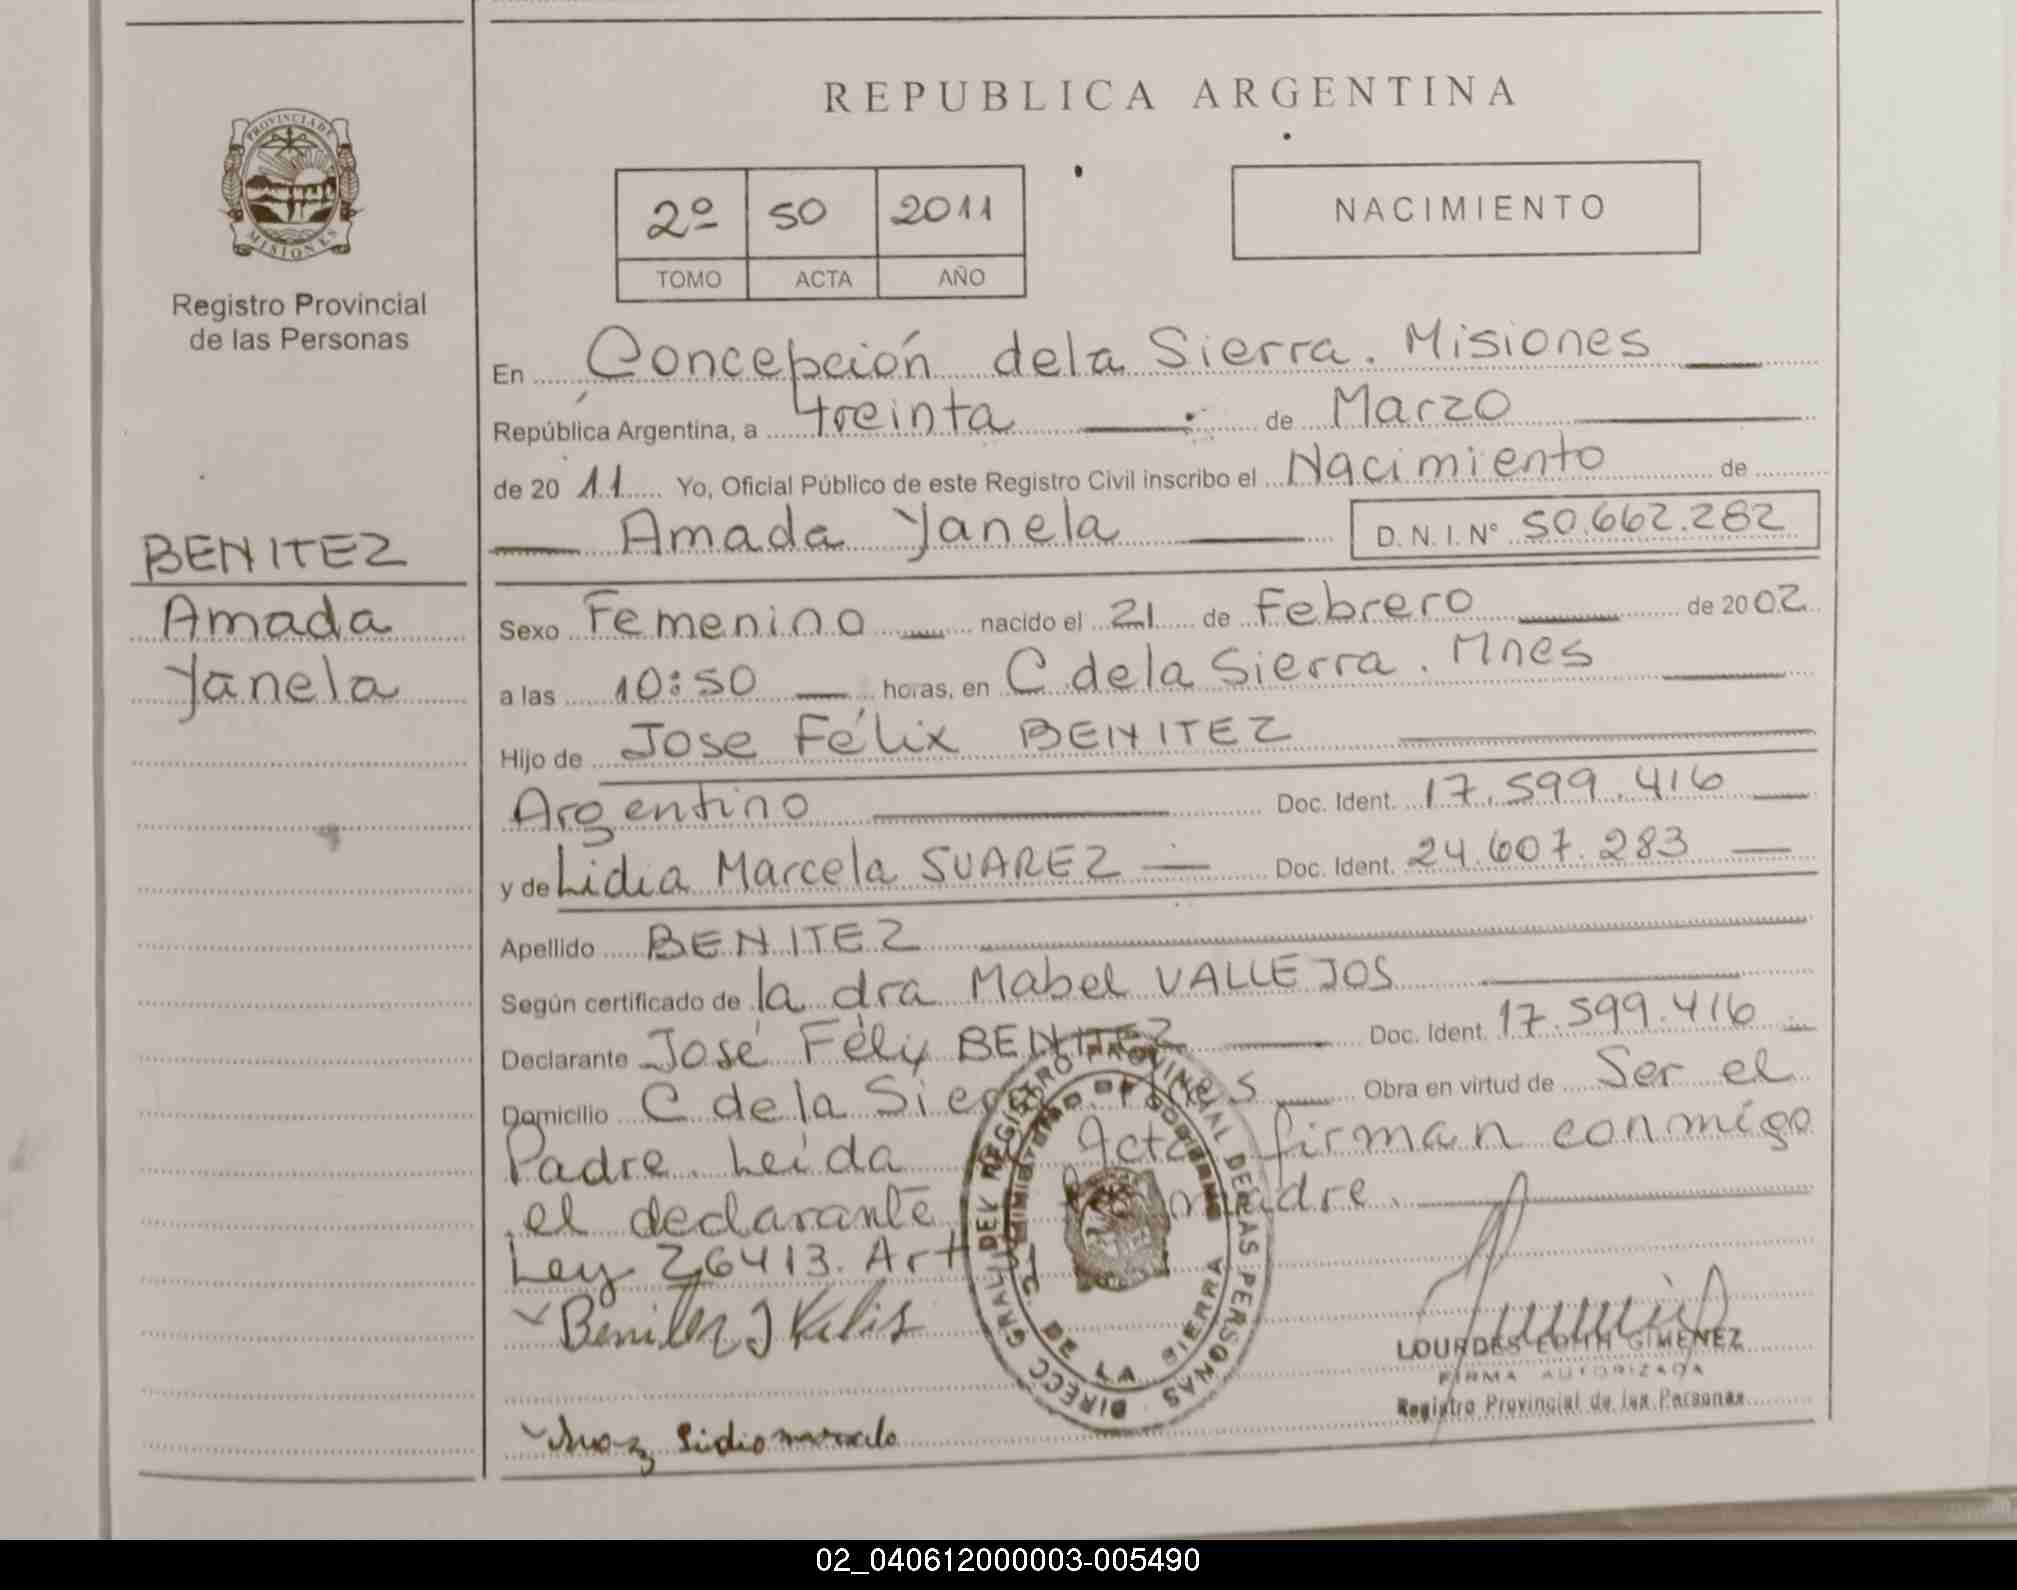 REPUBLICA ARGENTINA
PROVINCIA DE
MISIONES
Registro Provincial
de las Personas
2º 50 2011
TOMO ACTA AÑO
NACIMIENTO
En Concepción dela Sierra. Misiones
República Argentina, a treinta de Marzo
de 2011 Yo, Oficial Público de este Registro Civil inscribo el Nacimiento de
Amada Yanela D.N.I.Nº 50.662.282
BENITEZ
Amada
Yanela
Sexo Femenino nacido el 21 de Febrero de 2002
a las 10:50 horas, en C dela Sierra. Mnes
Hijo de Jose Félix BENITEZ
Argentino Doc. Ident. 17.599.416
y de Lidia Marcela SUAREZ Doc. Ident. 24.607.283
Apellido BENITEZ
Según certificado de la dra Mabel VALLEJOS
Declarante José Félix BENITEZ Doc. Ident. 17.599.416
Domicilio C dela Sierra. Mnes Obra en virtud de Ser el
Padre. Leída Acta firman conmigo
el declarante madre.
Ley 26413. Art
DIRECC GRAL DEL REGISTRO PROVINCIAL DE LAS PERSONAS
MINISTERIO DE GOBIERNO
C. DE LA SIERRA
Benitez J Felis
LOURDES EDITH GIMENEZ
FIRMA AUTORIZADA
Registro Provincial de las Personas
02_040612000003-005490